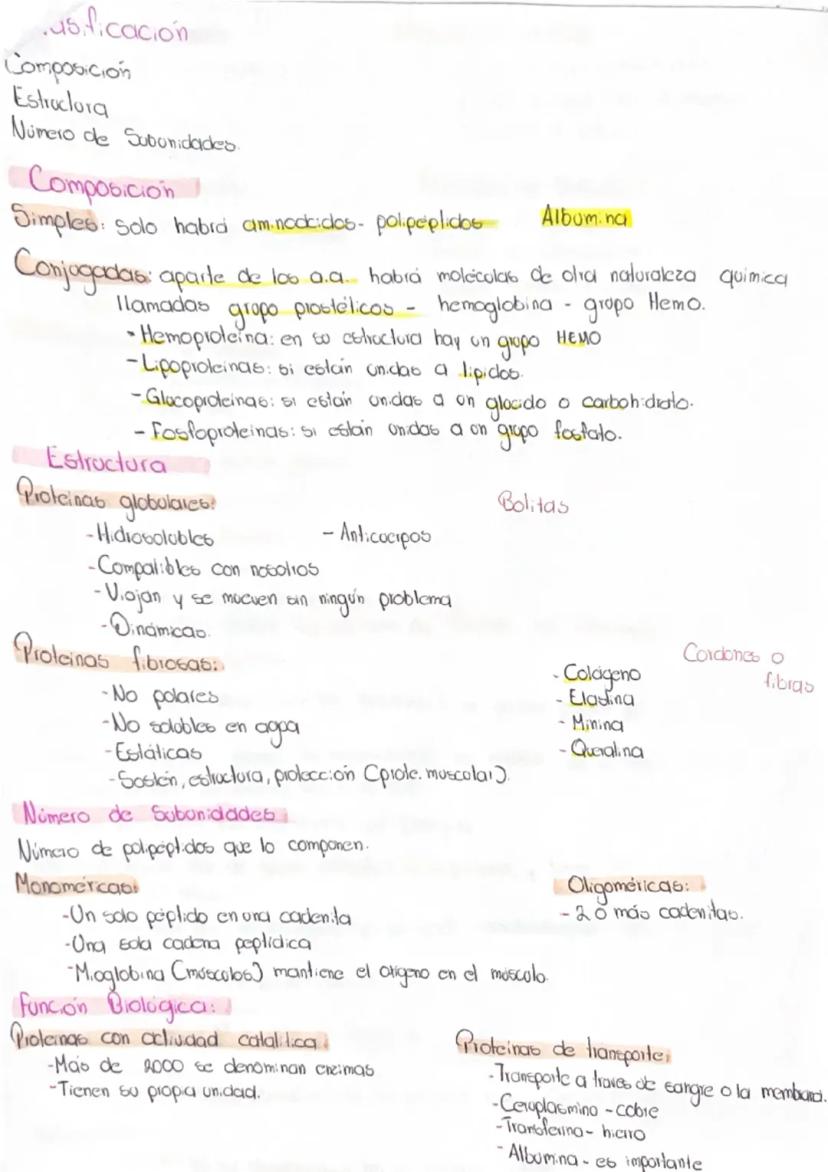 usificación
Composición
Estructura
Número de Subunidades.
Composición
Simples: Solo habrá aminoácidos - polipéptidos Albumina
Conjugadas: aparte de los a.a. habrá moléculas de otra naturaleza química
llamadas grupo prostéticos - hemoglobina - grupo Hemo.
- Hemoproteína: en su estructura hay un grupo HEMO
- Lipoproteínas: si están unidas a lípidos.
- Glucoproteínas: si están unidas a un glúcido o carbohidrato.
- Fosfoproteínas: si están unidas a un grupo fosfato.
Estructura
Proteínas globulares: Bolitas
- Hidrosolubles - Anticuerpos
- Compatibles con nosotros
- Viajan y se mueven sin ningún problema
- Dinámicas.
Proteínas fibrosas: Cordones o fibras
- No polares - Colágeno
- No solubles en agua - Elastina
- Estáticas - Minina
- Sostén, estructura, protección (prote. muscular). - Queratina
Número de Subunidades
Número de polipéptidos que lo componen.
Monoméricas: Oligoméricas:
- Un solo péptido en una cadenita - 2 o más cadenitas.
- Una sola cadena peptídica
- Mioglobina (músculos) mantiene el oxígeno en el músculo.
Función Biológica:
Proteínas con actividad catalítica: Proteínas de transporte:
- Más de 2000 se denominan enzimas
- Tienen su propia unidad.
- Transporte a través de sangre o la membrana.
- Ceruplasmino - cobre
- Transferina - hierro
- Albumina - es importante